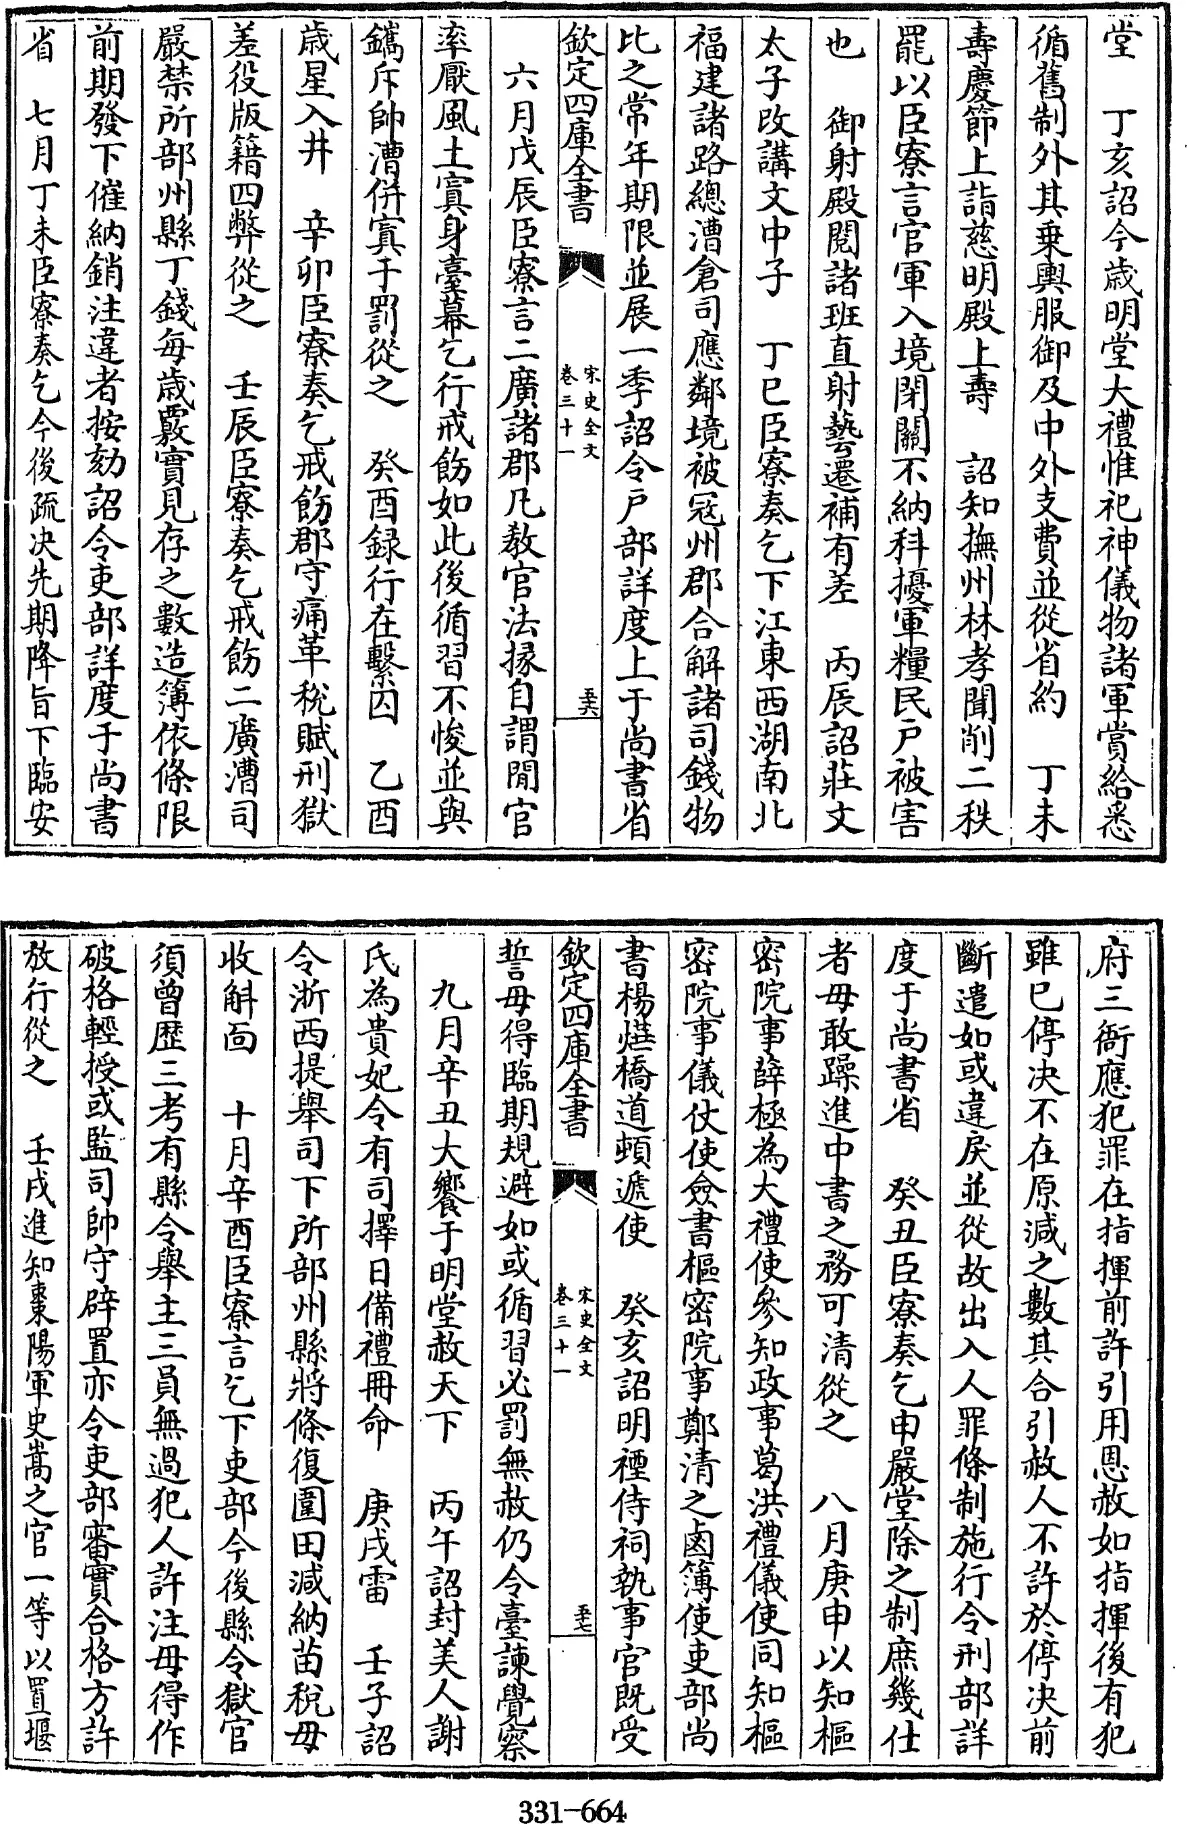 堂　丁亥詔今歳明堂大禮惟祀神儀物諸軍賞給悉
循舊制外其乗輿服御及中外支費並從省約　丁未
壽慶節上詣慈明殿上壽　詔知撫州林孝聞削二秩
罷以臣寮言官軍入境閉關不納科擾軍糧民戸被害
也　御射殿閲諸班直射藝遷補有差　丙辰詔莊文
太子改講文中子　丁巳臣寮奏乞下江東西湖南北
福建諸路總漕倉司應鄰境被冦州郡合解諸司錢物
比之常年期限並展一季詔令戸部詳度上于尚書省
欽定四庫全書
宋史全文
卷三十一
五六
六月戊辰臣寮言二廣諸郡凡教官法掾自謂閒官
率厭風土寘身臺幕乞行戒飭如此後循習不悛並與
鐫斥帥漕併寘于罰從之　癸酉録行在繫囚　乙酉
歳星入井　辛卯臣寮奏乞戒飭郡守痛革税賦刑獄
差役版籍四弊從之　壬辰臣寮奏乞戒飭二廣漕司
嚴禁所部州縣丁錢每歳覈實見存之數造簿依條限
前期發下催納銷注違者按劾詔令吏部詳度于尚書
省　七月丁未臣寮奏乞今後疏决先期降旨下臨安
府三衙應犯罪在指揮前許引用恩赦如指揮後有犯
雖已停决不在原減之數其合引赦人不許於停决前
斷遣如或違戾並從故出入人罪條制施行令刑部詳
度于尚書省　癸丑臣寮奏乞申嚴堂除之制庶幾仕
者毋敢躁進中書之務可清從之　八月庚申以知樞
密院事薛極為大禮使參知政事葛洪禮儀使同知樞
密院事儀仗使僉書樞密院事鄭清之鹵簿使吏部尚
書楊燁橋道頓遞使　癸亥詔明禋侍祠執事官既受
欽定四庫全書
宋史全文
卷三十一
五七
誓毋得臨期規避如或循習必罰無赦仍令臺諫覺察
九月辛丑大饗于明堂赦天下　丙午詔封美人謝
氏為貴妃令有司擇日備禮冊命　庚戌雷　壬子詔
令浙西提舉司下所部州縣將條復圍田減納苗税毋
收斛靣　十月辛酉臣寮言乞下吏部今後縣令獄官
須曾歴三考有縣令舉主三員無過犯人許注毋得作
破格輕授或監司帥守辟置亦令吏部審實合格方許
放行從之　壬戌進知棗陽軍史嵩之官一等以置堰
331-664